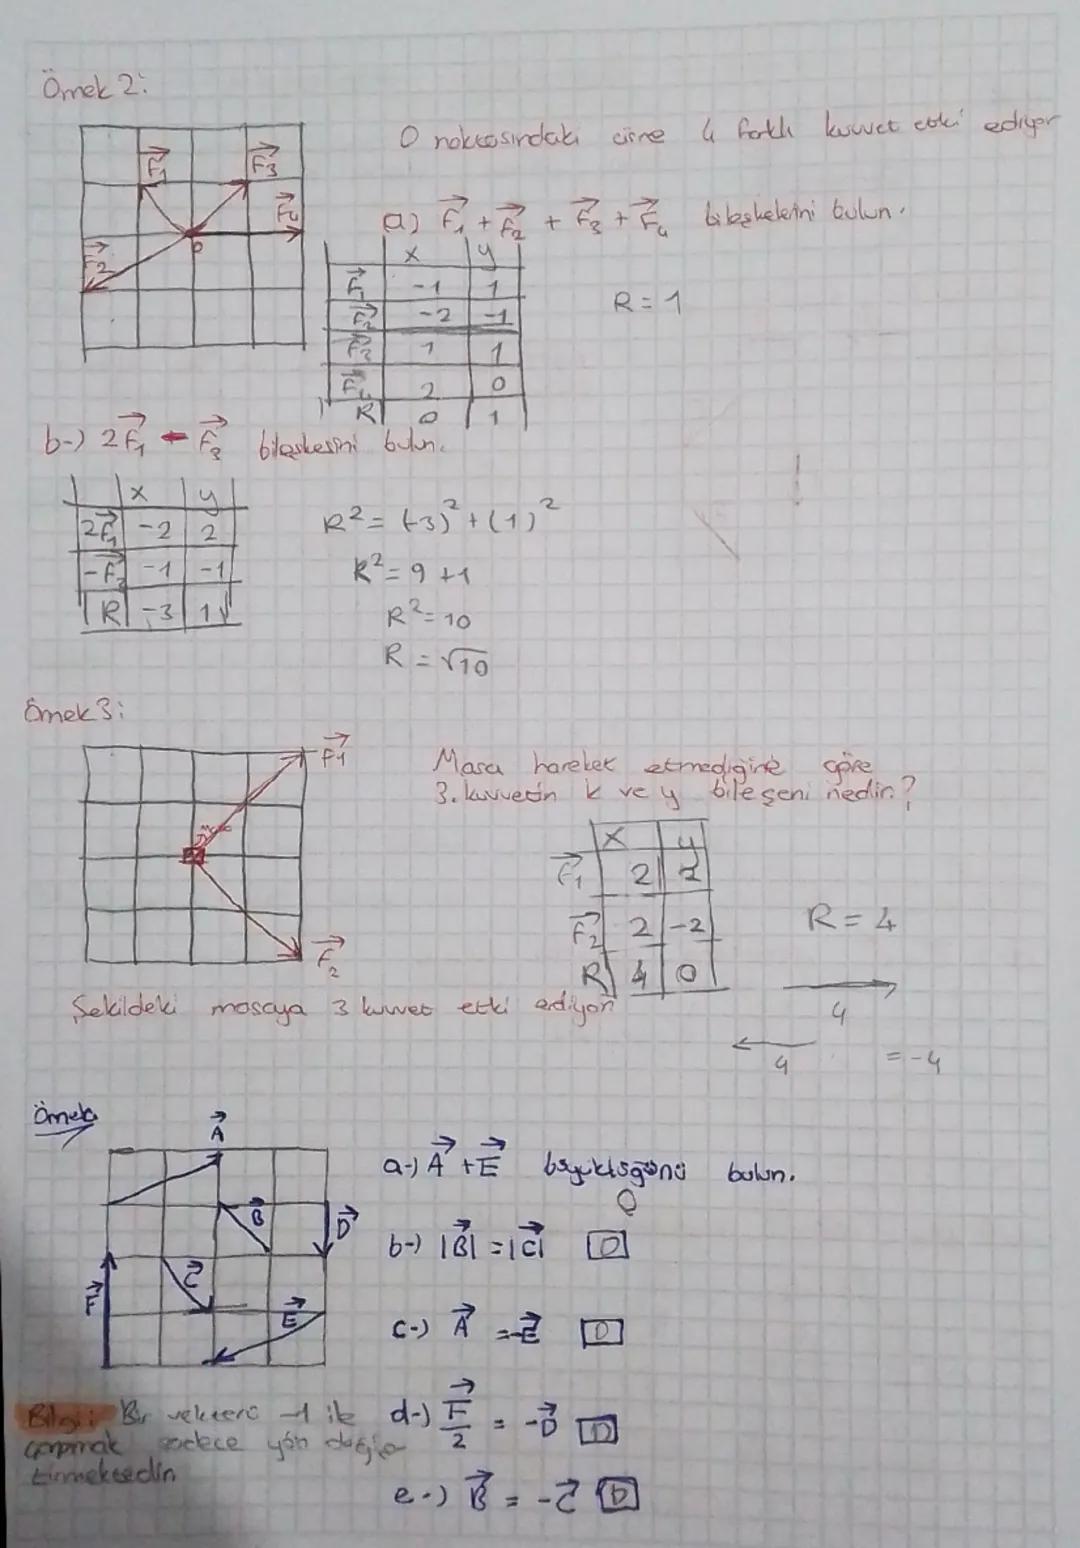 Örnek 2:
O noktasındaki cisme 4 farklı kuvvet etki ediyor
F1 F3
F4
F2
O
a) F1 + F2 + F3 + F4 bileşkelerini bulun.
x y
F1 -1 1
F2 -2 -1
F3 1 1
F4 2 0
R 0 1
R = 1
b-) 2F1 - F3 bileşkesini bulun.
x y
2F1 -2 2
-F3 -1 -1
R -3 1
R² = (-3)² + (1)²
R² = 9 + 1
R² = 10
R = √10
Örnek 3:
F1
Masa
F2
Masa hareket etmediğine göre
3. kuvvetin x ve y bileşeni nedir?
x y
F1 2 2
F2 2 -2
R 4 0
R = 4
4
4 = -4
Şekildeki masaya 3 kuvvet etki ediyor
Örnek
A
B
D
C
F
E
a-) A + E büyüklüğünü bulun.
0
b-) |B| = |C| D
c-) A = -E D
d-) F/2 = -D D
e-) B = -C D
Bilgi: Bir vektörü -1 ile
çarpmak sadece yön değiş
tirmektedir